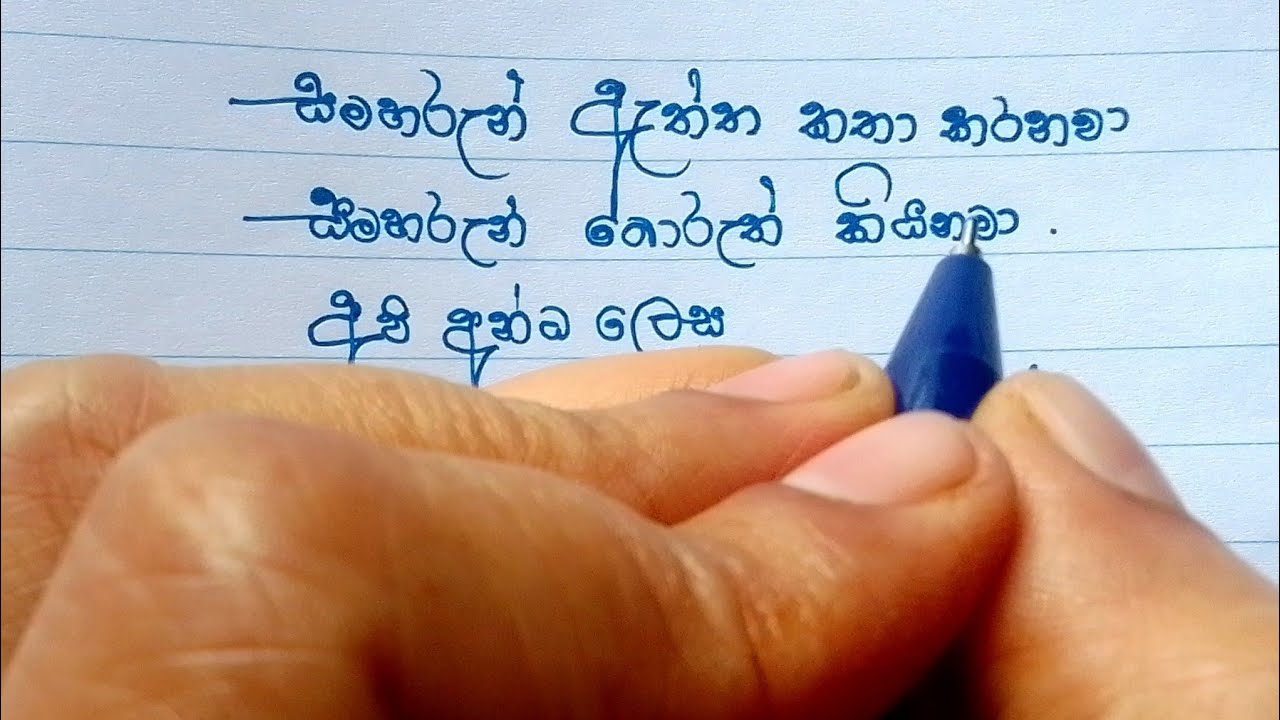 සමහරුන් ඇත්ත කතා කරනවා
සමහරුන් තොරුත් කියනවා .
අපි අන්ධ ලෙස